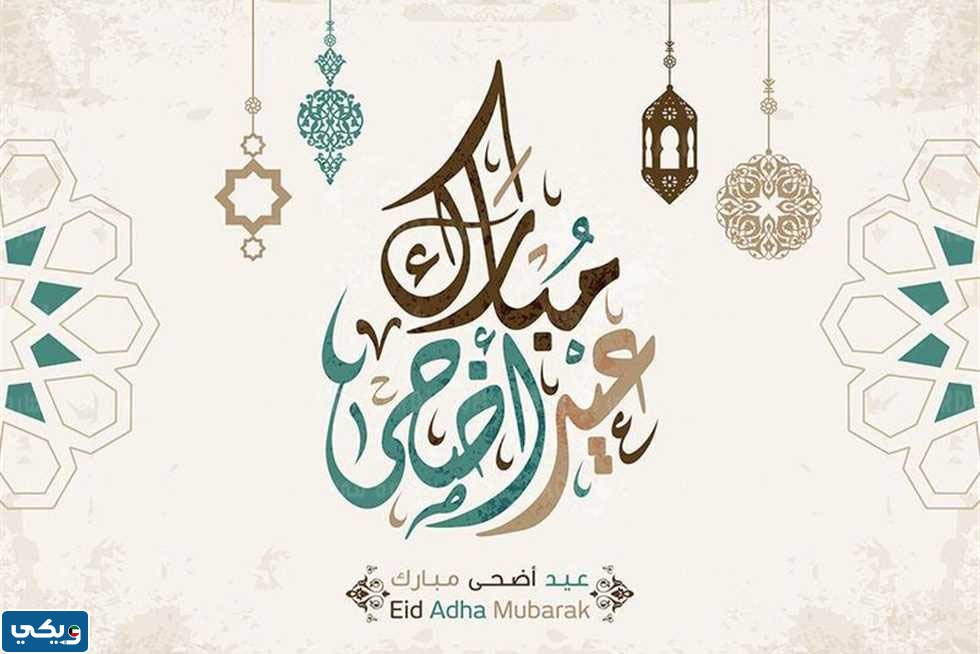 مبارك
عيد أضحى
عيد أضحى مبارك
Eid Adha Mubarak
ويكي